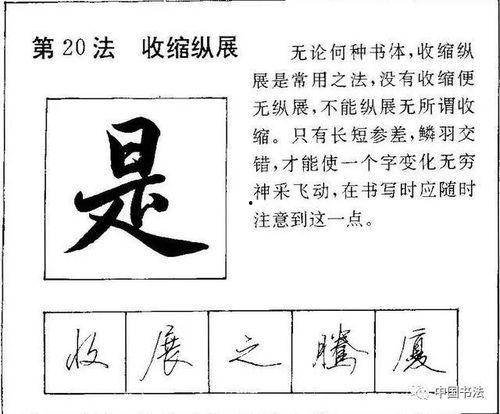 第20法 收缩纵展
无论何种书体,收缩纵
展是常用之法,没有收缩便
无纵展,不能纵展无所谓收
缩。只有长短参差,鳞羽交
错,才能使一个字变化无穷
神采飞动,在书写时应随时
注意到这一点。
是
收展之腾厦
中国书法